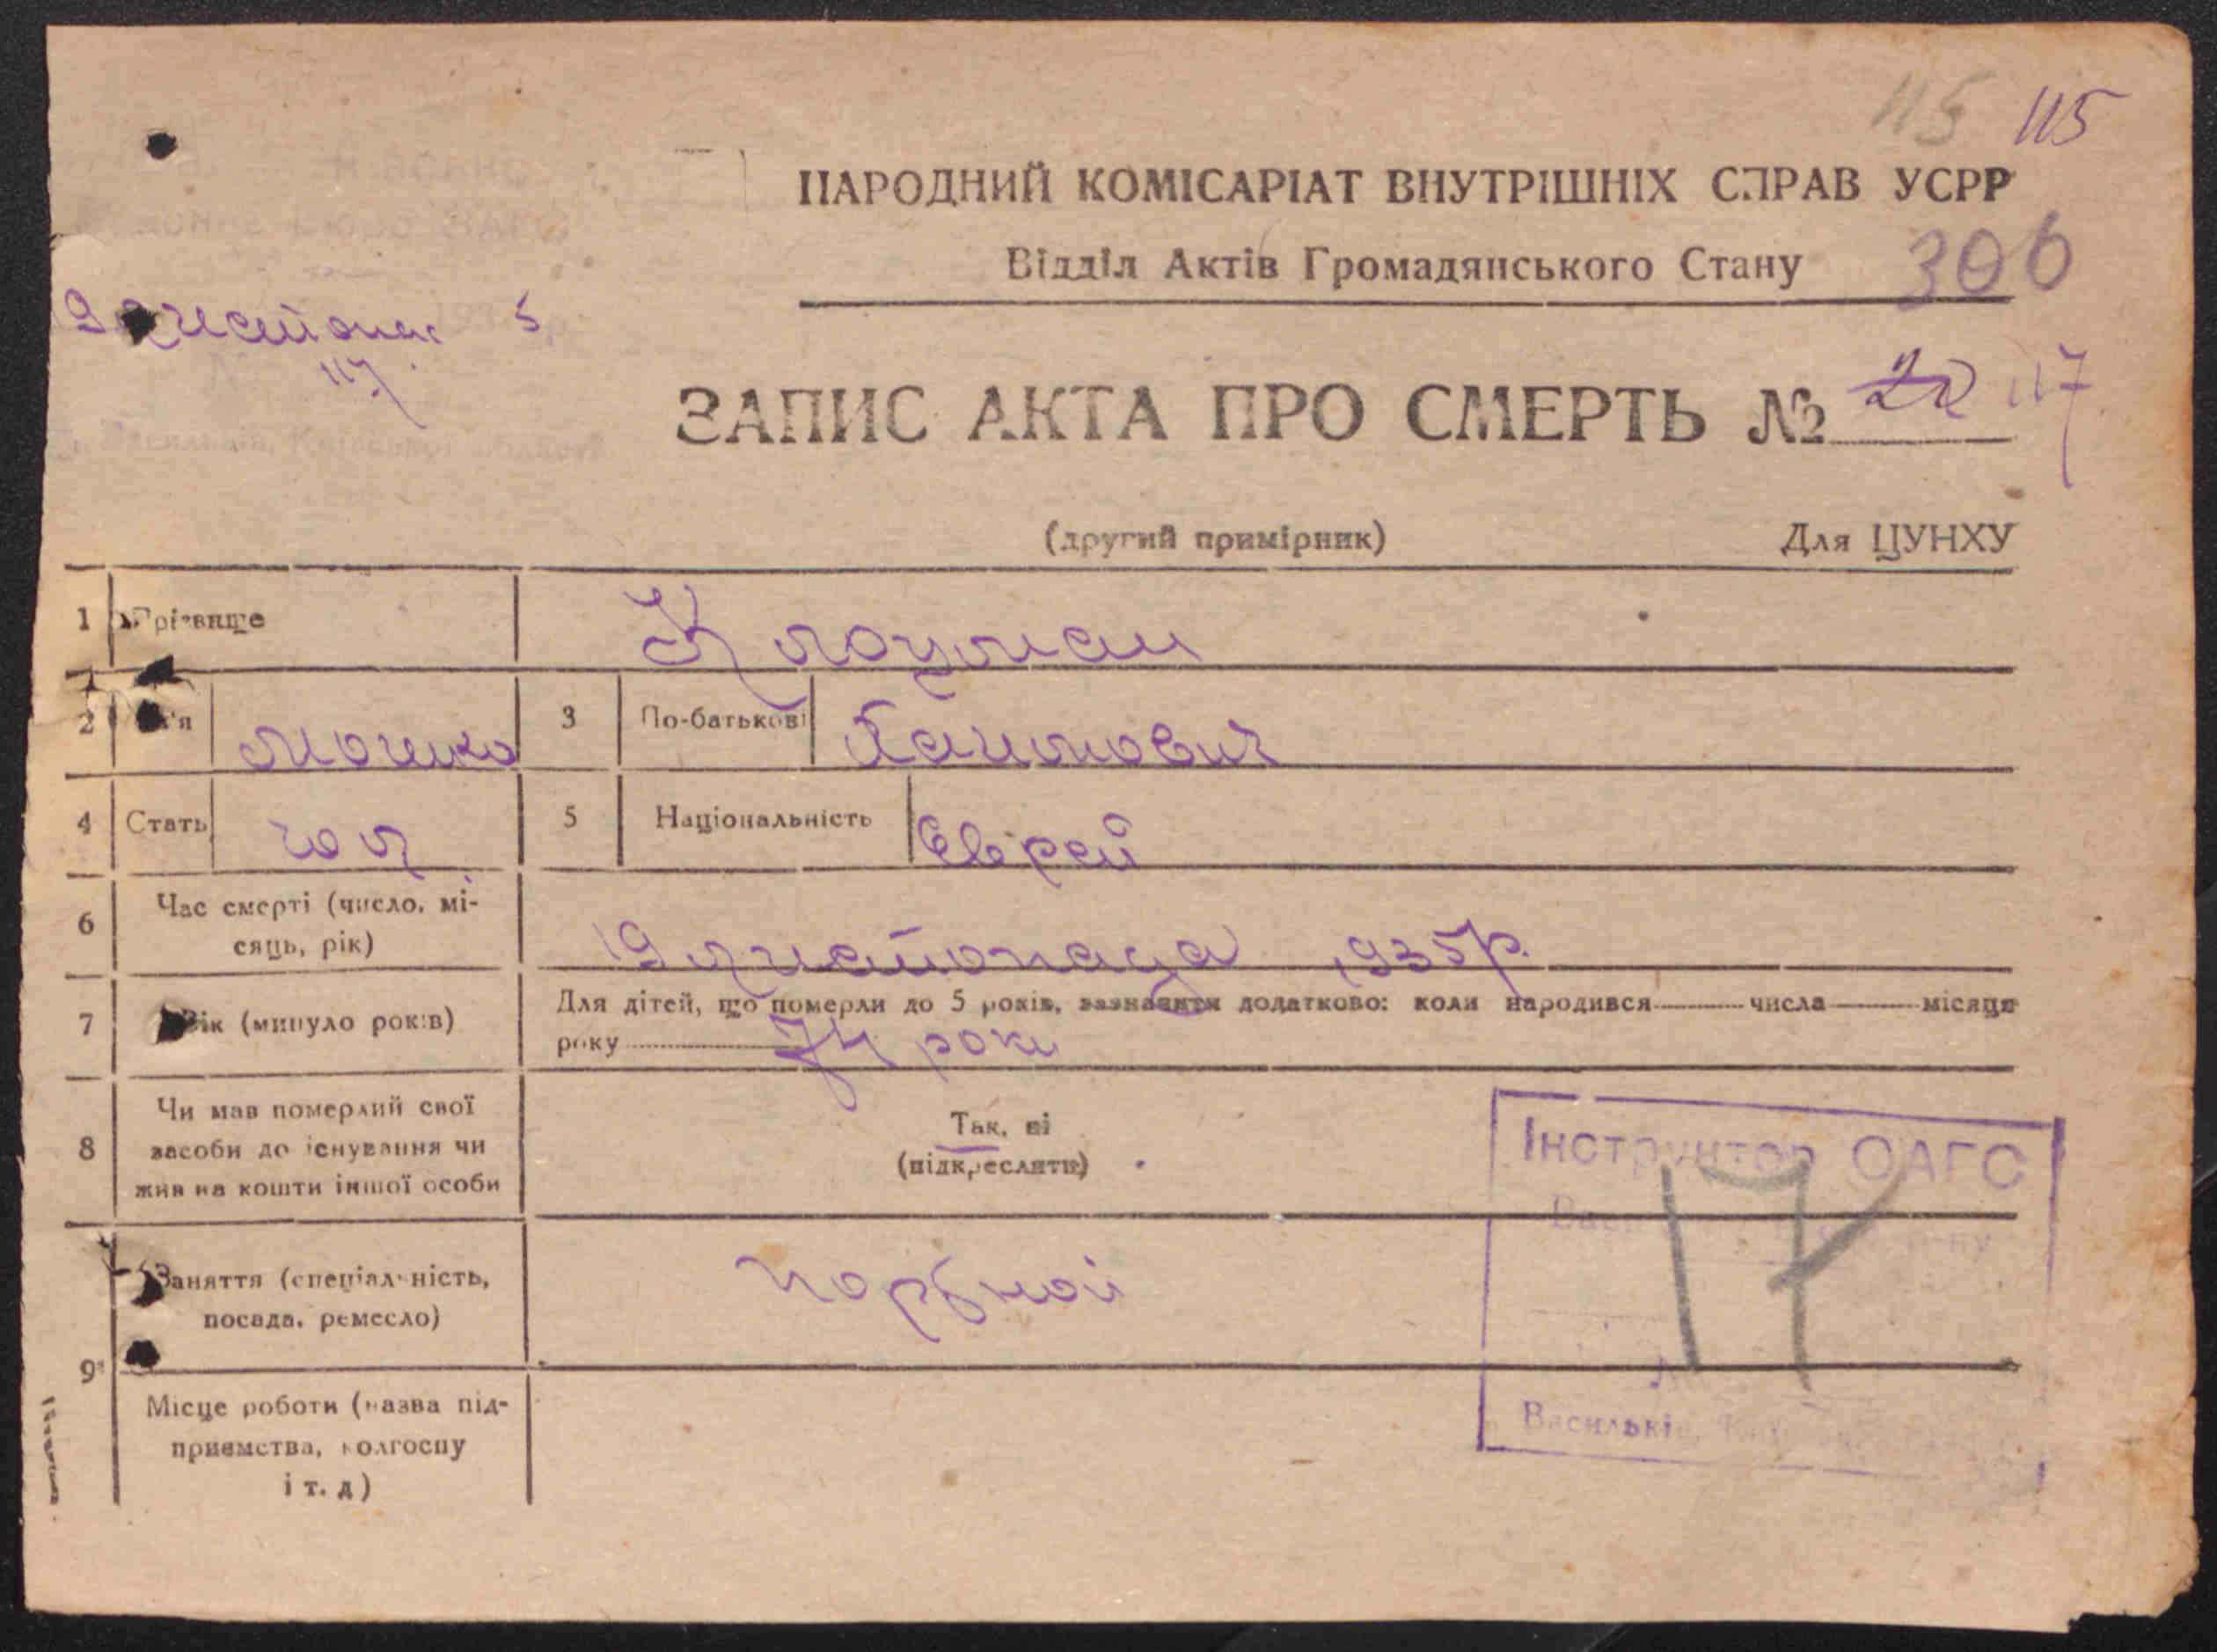 115 115
НАРОДНИЙ КОМІСАРІАТ ВНУТРІШНІХ СПРАВ УСРР
Відділ Актів Громадянського Стану 306
19 листопада 1935 р.
№ 117
м. Васильків, Київської області
ЗАПИС АКТА ПРО СМЕРТЬ № 22 117
(другий примірник) Для ЦУНХУ
1 Прізвище Клоцман
2 Ім'я Мошко 3 По-батькові
4 Стать чол 5 Національність Єврей
6 Час смерті (число, мі-
сяць, рік) 19 листопада 1935р.
7 Вік (минуло років) Для дітей, що померли до 5 років, зазначити додатково: коли народився числа місяця
року 74 роки
8 Чи мав померлий свої
засоби до існування чи
жив на кошти іншої особи
Так, ні
(підкреслити)
Заняття (спеціальність,
посада, ремесло)
9
Місце роботи (назва під-
приємства, колгоспу
і т. д)
Інструктор ОАГС
17
Васильків